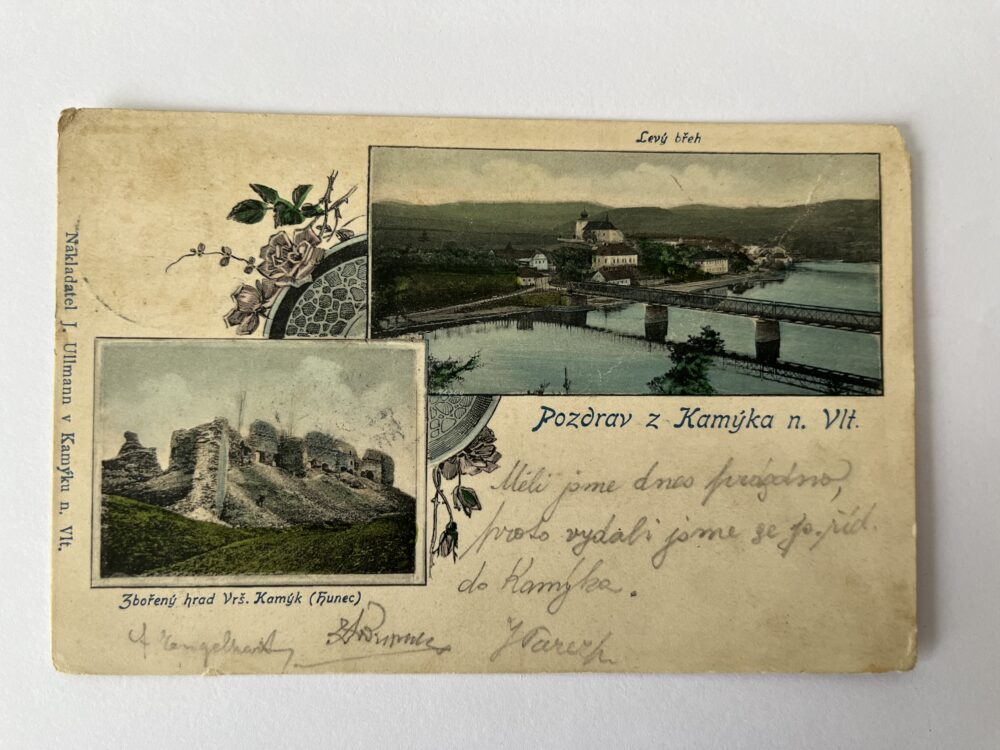 Levý břeh
Nakladatel J. Ullmann v Kamýku n. Vlt.
Pozdrav z Kamýka n. Vlt.
Měli jsme dnes prázdno,
proto vydali jsme se p. říd.
do Kamýka.
Zbořený hrad Vrš. Kamýk (Hunec)